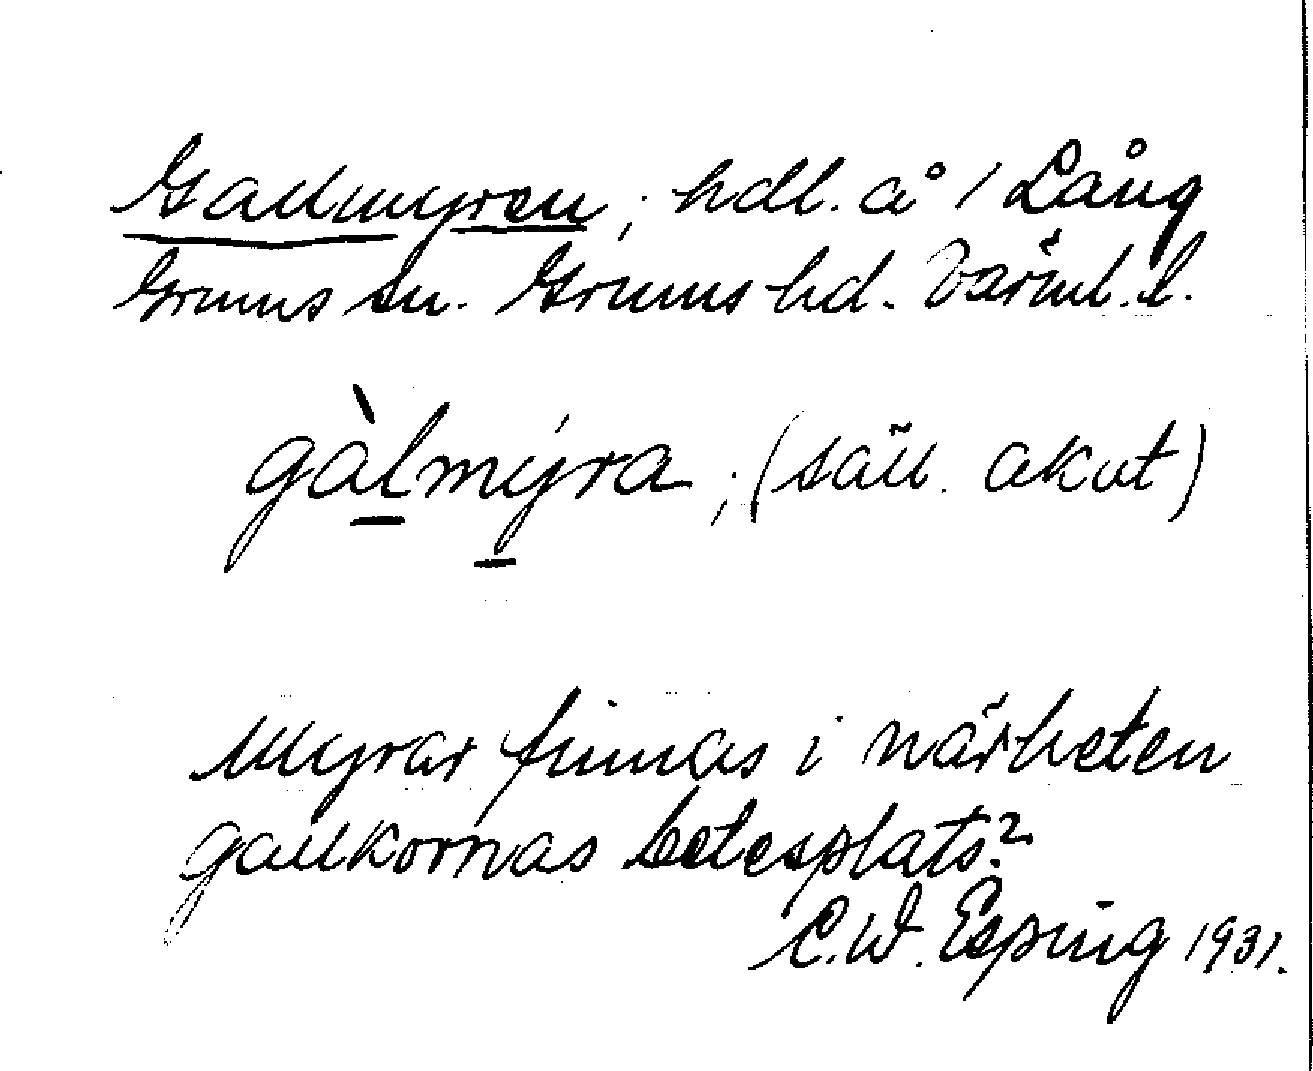 Gallmyren; hdl. å 1 Lång
Grums sn. Grums hd. Värml. l.
gàlmýra; (säll. akut)
Myrar finnas i närheten
gallkornas betesplats?
C. W. Esping 1931.